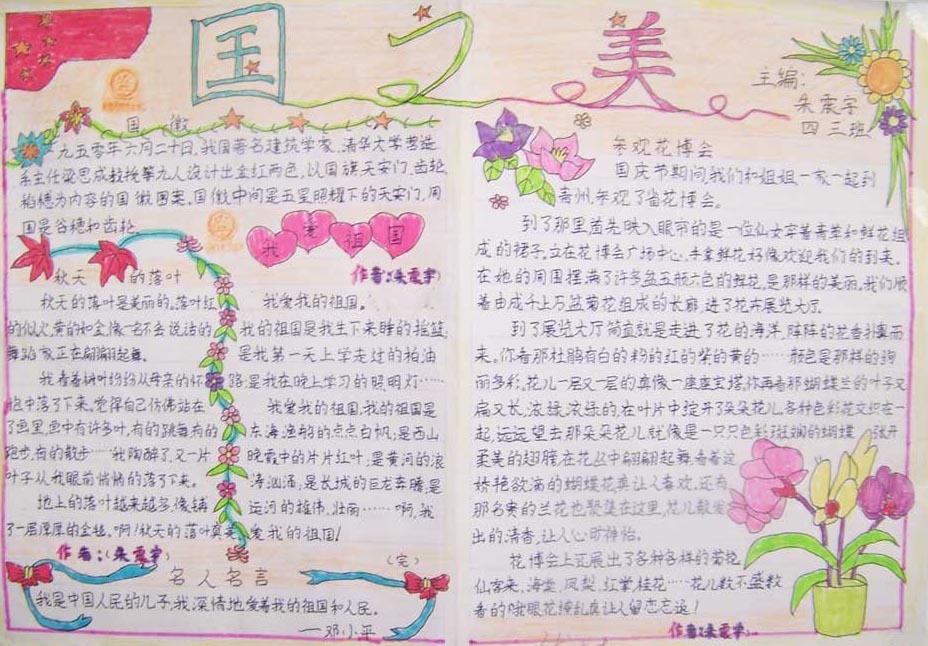 国之美
主编:
朱震宇
四三班
国徽
一九五零年六月二十日,我国著名建筑学家、清华大学营造
系主任梁思成教授等九人设计出金红两色,以国旗天安门、齿轮、
稻穗为内容的国徽图案。国徽中间是五星照耀下的天安门,周
围是谷穗和齿轮
秋天的落叶
秋天的落叶是美丽的。落叶红
的似火,黄的和金像一名不会说话的
舞蹈家正在翩翩起舞。
我看着树叶纷纷从母亲的怀
抱中落了下来。觉得自己仿佛站在
了画里,画中有许多叶,有的跳舞,有的
跑步,有的散步……我陶醉了,又一片
叶子从我眼前悄悄的落了下来。
地上的落叶越来越多,像铺
了一层厚厚的金毯。啊!秋天的落叶真美
作者:(朱震宇)
我爱祖国
作者:朱震宇
我爱我的祖国。
我的祖国是我生下来睡的摇篮;
是我第一天上学走过的柏油
路;是我在晚上学习的照明灯……
我爱我的祖国,我的祖国是
东海渔船的点点白帆;是西山
晚霞中的片片红叶,是黄河的浪
涛汹涌,是长城的巨龙奔腾;是
运河的雄伟,壮丽……啊,我
爱我的祖国!
(完)
名人名言
我是中国人民的儿子,我深情地爱着我的祖国和人民。
——邓小平
参观花博会
国庆节期间,我们和姐姐一家一起到
青州,参观了省花博会。
到了那里首先映入眼帘的是一位仙女穿着青草和鲜花组
成的裙子,立在花博会广场中心,手拿鲜花好像欢迎我们的到来。
在她的周围摆满了许多盆五颜六色的鲜花,是那样的美丽。我们顺
着由成千上万盆菊花组成的长廊,进了花卉展览大厅。
到了展览大厅简直就是走进了花的海洋,阵阵的花香扑鼻而
来。你看那杜鹃有白的粉的红的紫的黄的……颜色是那样的绚
丽多彩,花儿一层又一层的真像一座座宝塔,你再看那蝴蝶兰的叶子又
扁又长,浓绿,浓绿的,在叶片中绽开了朵朵花儿,各种色彩花交织在一
起,远远望去那朵朵花儿就像是一只只色彩斑斓的蝴蝶张开
柔美的翅膀,在花丛中翩翩起舞。看着这
娇艳欲滴的蝴蝶花真让人喜欢,还有
那名寨的兰花也聚集在这里,花儿散发
出的清香,让人心旷神怡。
花博会上还展出了各种各样的菊花,
仙客来,海棠,凤梨,红掌,桂花……花儿数不盛数
看的我眼花缭乱真让人留恋忘返!
作者:朱震宇